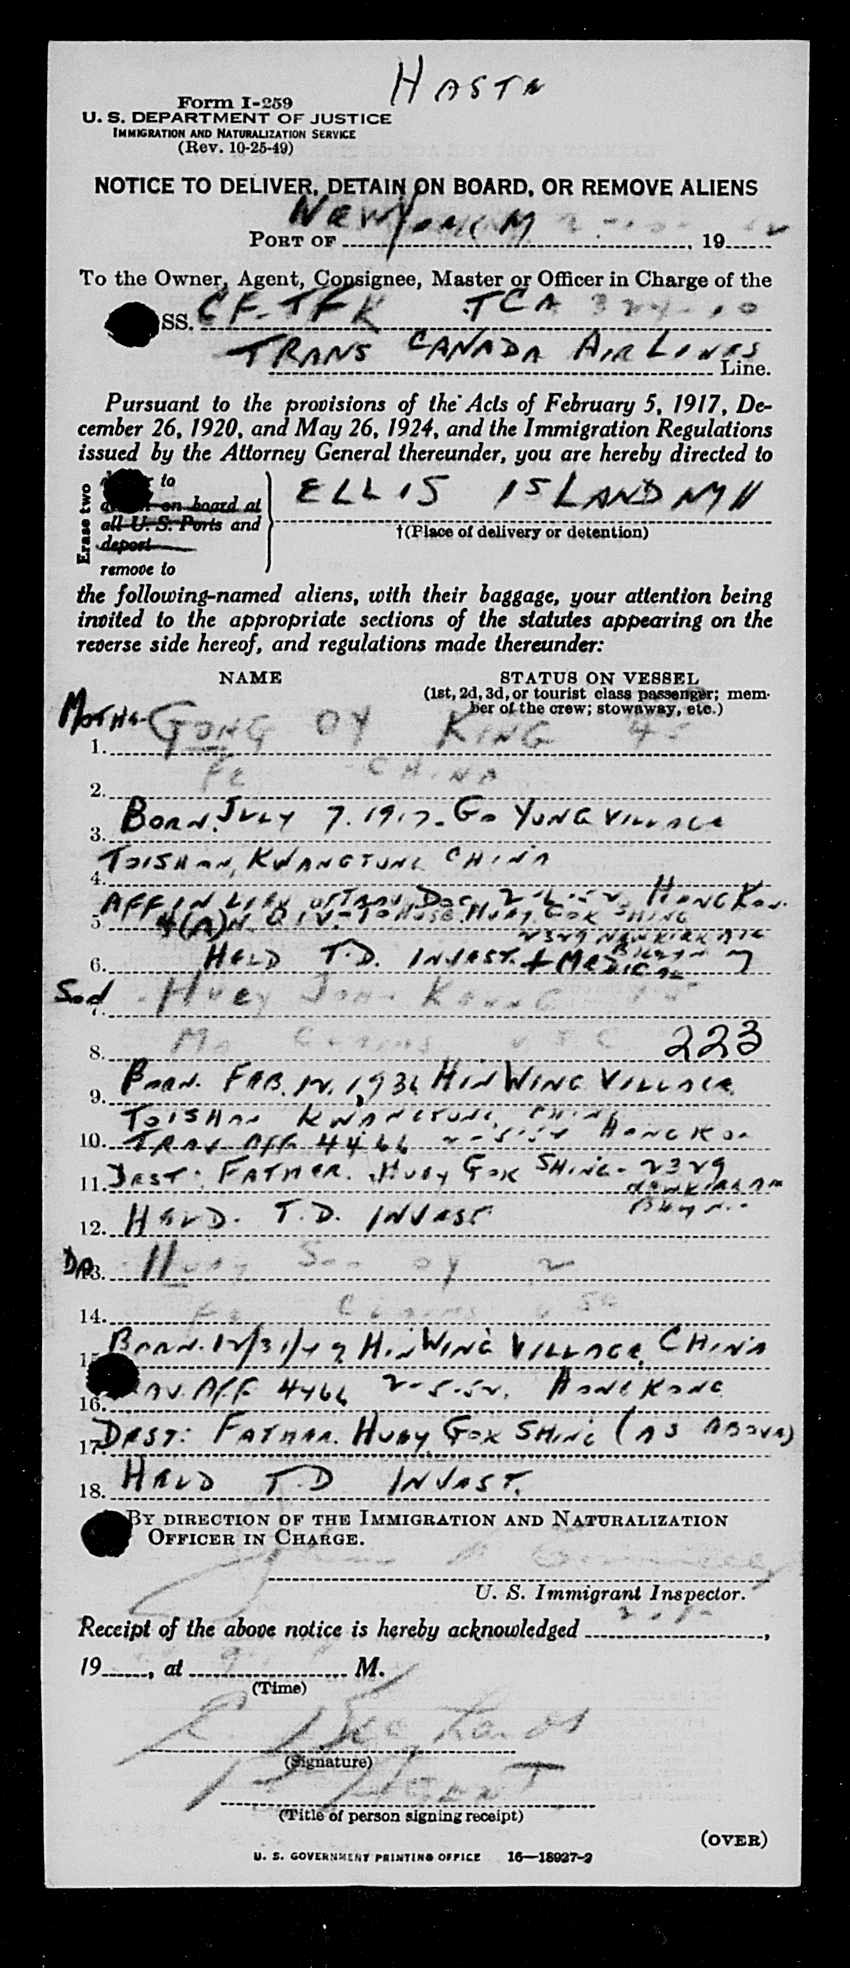 HASTA
Form I-259
U. S. DEPARTMENT OF JUSTICE
IMMIGRATION AND NATURALIZATION SERVICE
(Rev. 10-25-49)
NOTICE TO DELIVER, DETAIN ON BOARD, OR REMOVE ALIENS
PORT OF New York, 19
To the Owner, Agent, Consignee, Master or Officer in Charge of the
SS. CF-TFK TCA
TRANS CANADA AIR LINES Line.
Pursuant to the provisions of the Acts of February 5, 1917, De-
cember 26, 1920, and May 26, 1924, and the Immigration Regulations
issued by the Attorney General thereunder, you are hereby directed to
Erase two
to
on board at
all U. S. Ports and
deport
remove to
ELLIS ISLAND NY
†(Place of delivery or detention)
the following-named aliens, with their baggage, your attention being
invited to the appropriate sections of the statutes appearing on the
reverse side hereof, and regulations made thereunder:
NAME STATUS ON VESSEL
(1st, 2d, 3d, or tourist class passenger; mem-
ber of the crew; stowaway, etc.)
MOTHER
1. GONG OY KING
2. Fe CHINA
3. BORN. JULY 7. 1917. GO YUNG VILLAGE
4. TOISHAN, KWANGTUNG CHINA
5. AFF IN LIEU OF TRAV. DOC HONG KONG
4(A) N.Q.I.V. TO HUSB. HUEY GOK SHING
2329 NEWKIRK AVE
6. HELD T.D. INVEST. + MEDICAL
7. HUEY
8. Ma CLAIMS USC 223
9. BORN. FEB. 12, 1936 HIN WING VILLAGE
TOISHAN KWANGTUNG, CHINA
10. TRAV AFF 4466 HONG KONG
11. DEST: FATHER. HUEY GOK SHING - 2329
NEWKIRK AVE
BKLYN
12. HELD. T.D. INVEST
13. HUEY OY 2
14. Fe CLAIMS USC
15. BORN. 12/31/49 HIN WING VILLAGE, CHINA
16. TRAV. AFF 4466 2-5-52, HONG KONG
17. DEST: FATHER. HUEY GOK SHING (AS ABOVE)
18. HELD T.D INVEST.
BY DIRECTION OF THE IMMIGRATION AND NATURALIZATION
OFFICER IN CHARGE.
U. S. Immigrant Inspector.
Receipt of the above notice is hereby acknowledged ,
19, at M.
(Time)
(Signature)
AGENT
(Title of person signing receipt)
(OVER)
U. S. GOVERNMENT PRINTING OFFICE 16—18927-2